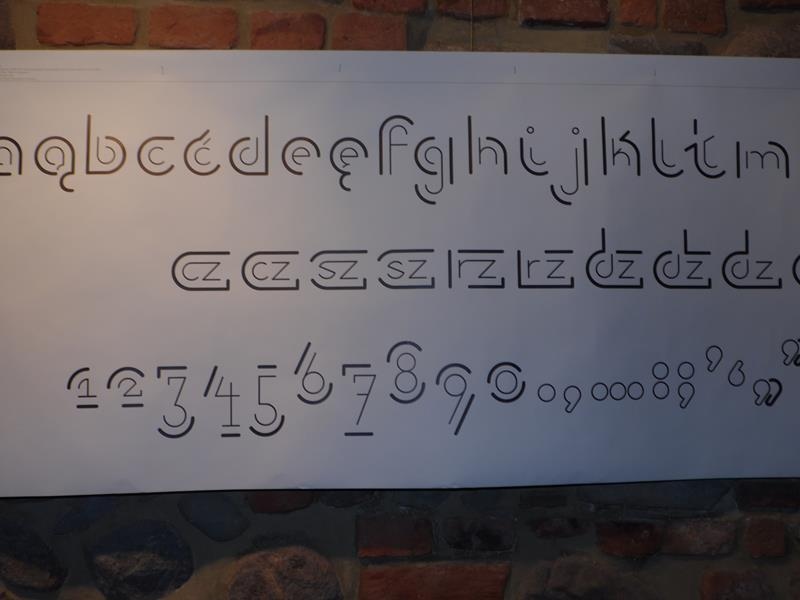 a ą b c ć d e ę f g h i j k l ł m
cz cz sz sz rz rz dz dź dż
1 2 3 4 5 6 7 8 9 0 . , ... : ; ’ ‘ ”